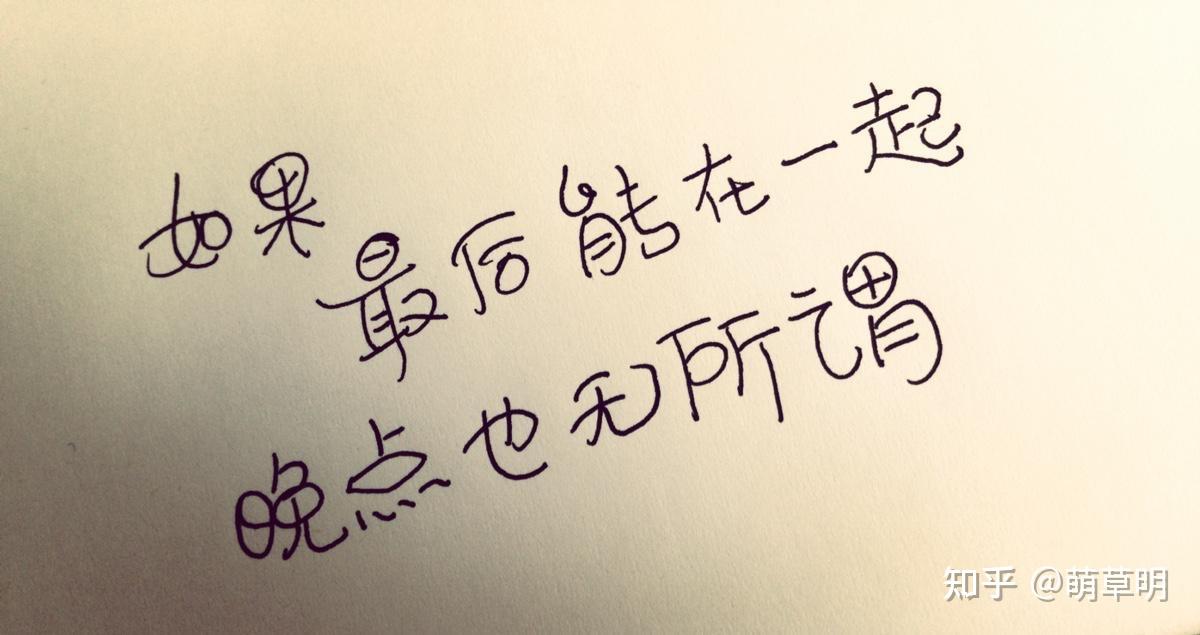 如果最后能在一起
晚点也无所谓
知乎 @萌草明